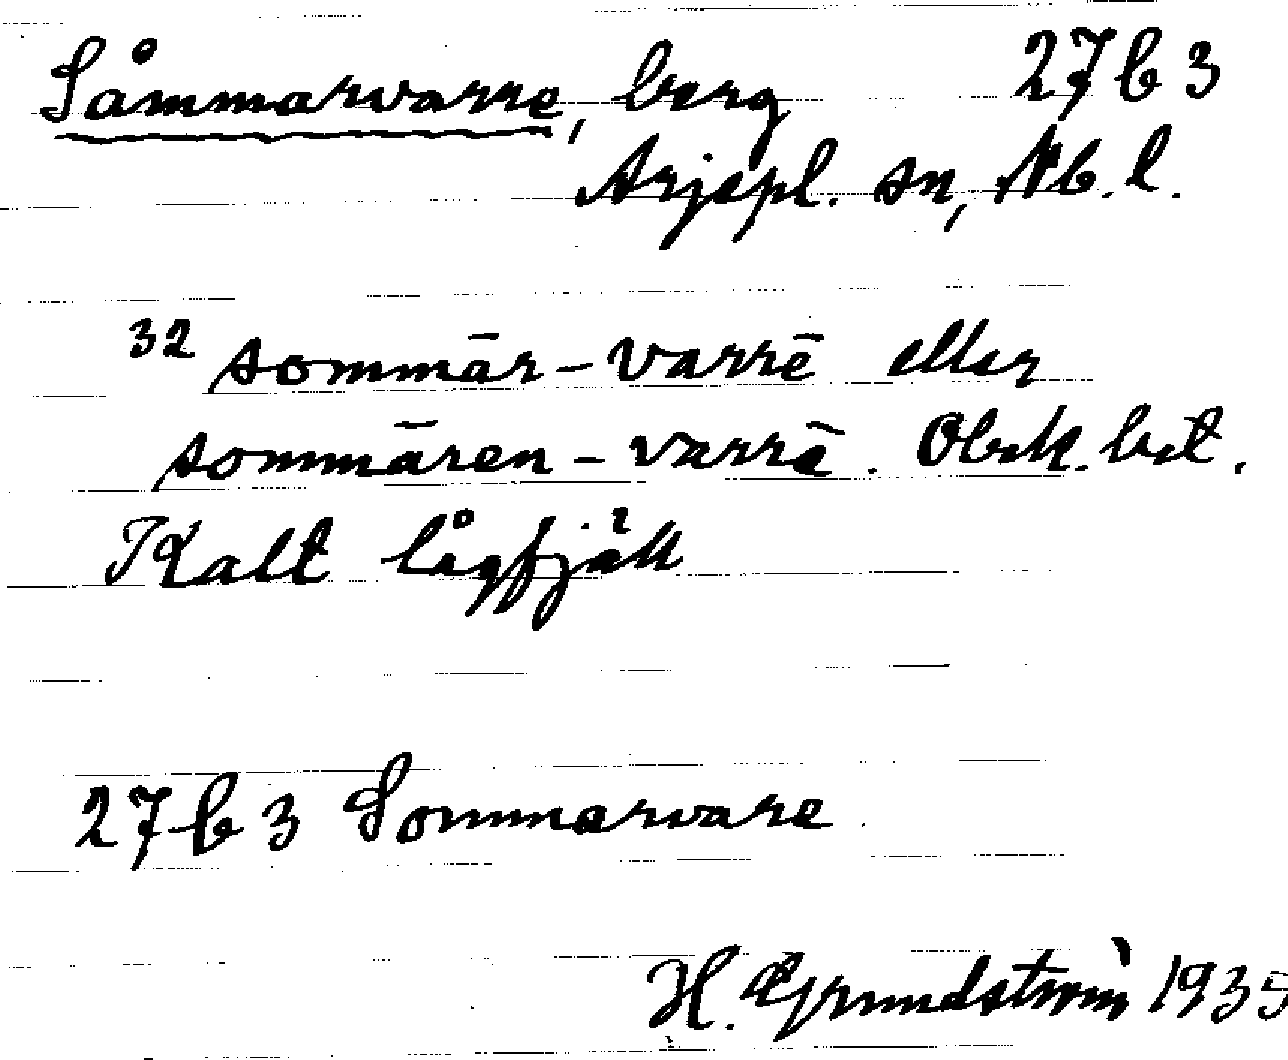 Såmmarvarre, berg 27 b 3
Arjepl. sn, Nb. l.
³² sommār-varrē eller
sommāren-varrē. Obek. bet.
Kalt lågfjäll
27 b 3 Sommarvare
H. Grundström 1935